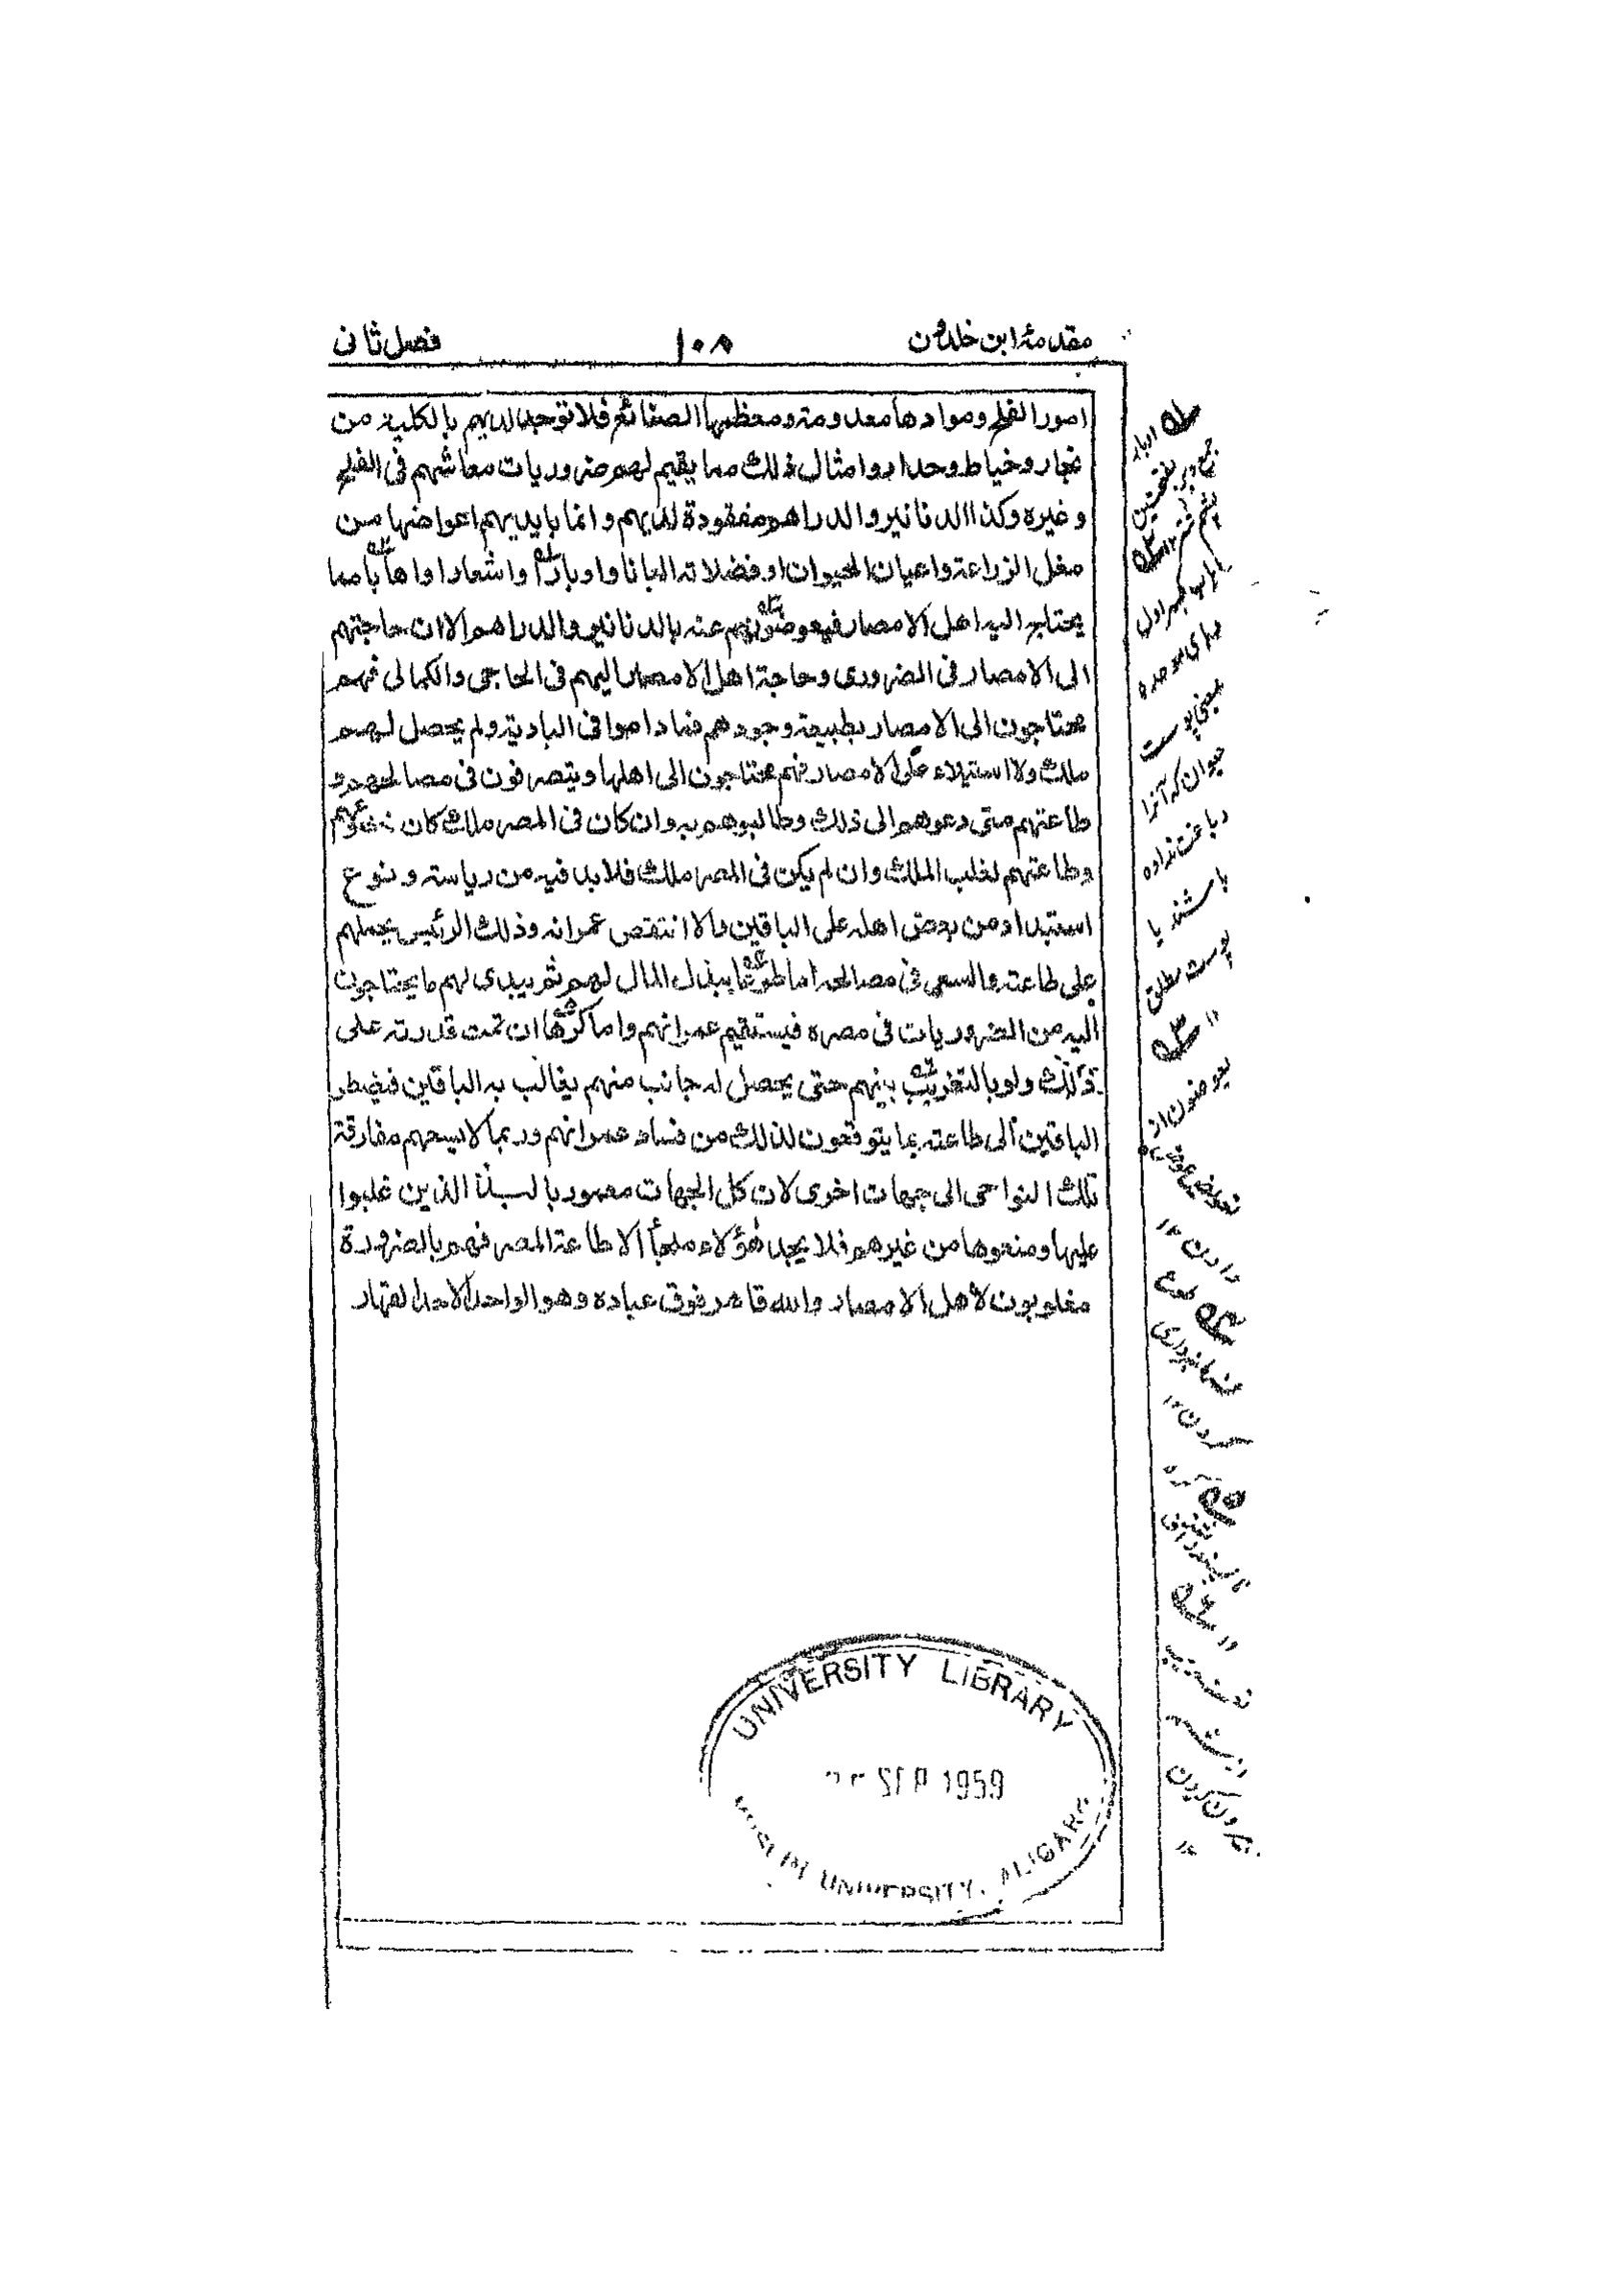 مقدمۀ ابن خلدون
١٠٨
فصل ثانی
امور الفلح وموادها معدومة ومعظمها الصنائع فلا توجد لديهم بالكلية من
نجار وخياط وحداد وامثال ذلك مما يقيم لهم ضروريات معاشهم فى الفلح
وغيره وكذا الدنانير والدراهم مفقودة لديهم وانما بايديهم اعواضها من
مغل الزراعة واعيان الحيوان او فضلاته البانا واوبارا واشعارا واهابا مما
يحتاج اليه اهل الامصار فيعوضونهم عنه بالدنانير والدراهم الا ان حاجتهم
الى الامصار فى الضرورى وحاجة اهل الامصار اليهم فى الحاجى والكمالى فهم
محتاجون الى الامصار بطبيعة وجودهم فما داموا فى البادية ولم يحصل لهم
ملك ولا استيلاء على الامصار فهم محتاجون الى اهلها ويتصرفون فى مصالحهم و
طاعتهم متى دعوهم الى ذلك وطالبوهم به وان كان فى المصر ملك كان خضوعهم
وطاعتهم لغلب الملك وان لم يكن فى المصر ملك فلا بد فيه من رياسة ونوع
استبداد من بعض اهله على الباقين والا انتقص عمرانه وذلك الرئيس يحملهم
على طاعته والسعى فى مصالحه اما طوعا ببذل المال لهم ثم يبدى لهم ما يحتاجون
اليه من الضروريات فى مصره فيستقيم عمرانهم واما كرها ان تمت قدرته على
ذلك ولو بالتغريب بينهم حتى يحصل له جانب منهم يغالب به الباقين فيضطر
الباقين الى طاعته بما يتوقعون لذلك من فساد عمرانهم وربما لا يسعهم مفارقة
تلك النواحى الى جهات اخرى لان كل الجهات معمور بالبدو الذين غلبوا
عليها ومنعوها من غيرهم فلا يجد هؤلاء ملجأ الا طاعة المصر فهم بالضرورة
مغلوبون لأهل الامصار والله قاهر فوق عباده وهو الواحد الاحد القهار
اوبار
جمع وبر بفتحتين
پشم شتر ١٢
اهاب بكسر اول
وبای موحده
بمعنی پوست
حیوان که آنرا
دباغت نداده
باشند یا
پوست مطلق
١٢
یعوضون از
تعویض عوض
دادن ١٢
طوع
فرمانبرداری
کردن ١٢
UNIVERSITY LIBRARY
SEP 1959
UNIVERSITY, ALIGARH